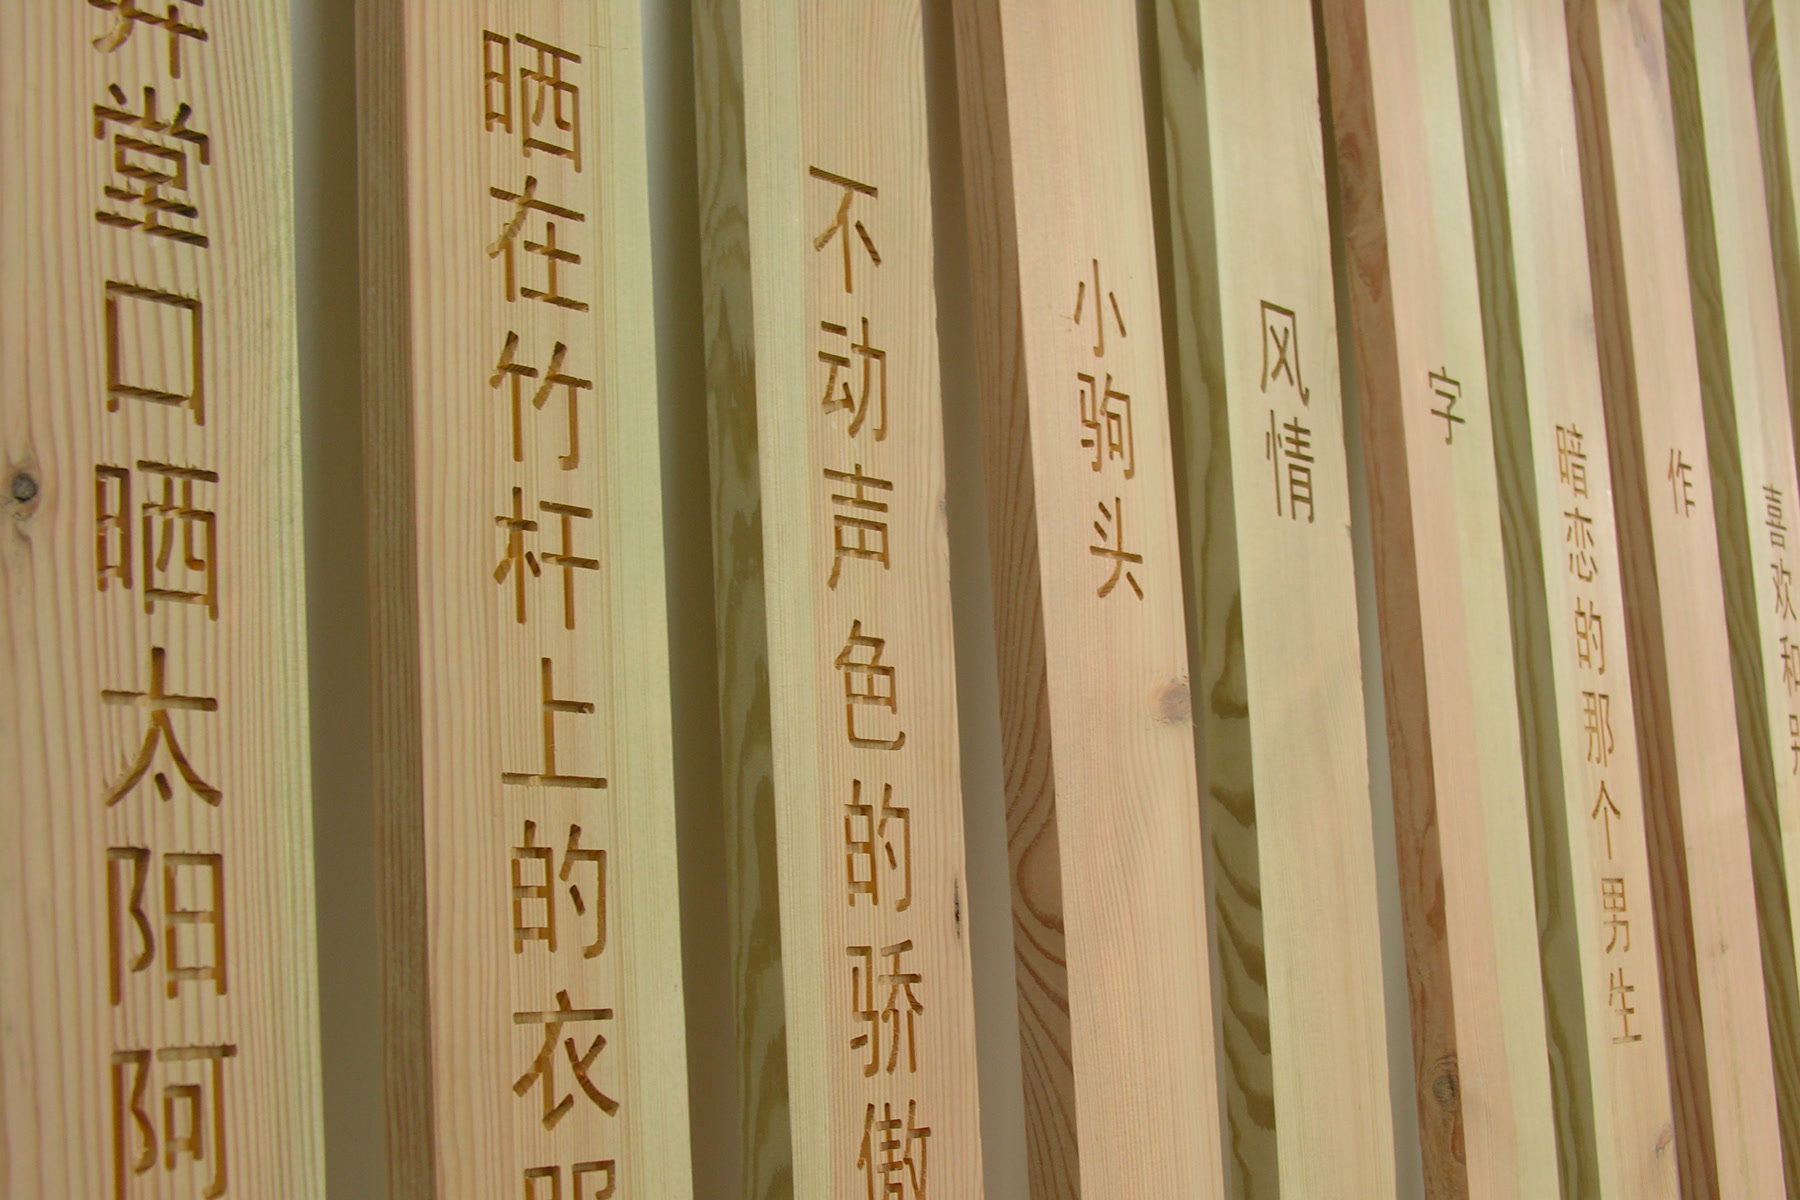 弄堂口晒太阳阿
晒在竹杆上的衣服
不动声色的骄傲
小驹头
风情
字
暗恋的那个男生
作
喜欢和别